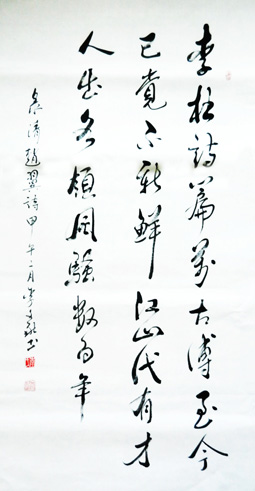 李杜詩篇萬古傳至今
已覺不新鮮江山代有才
人出各領風騷數百年
录清趙翼詩甲午二月李书